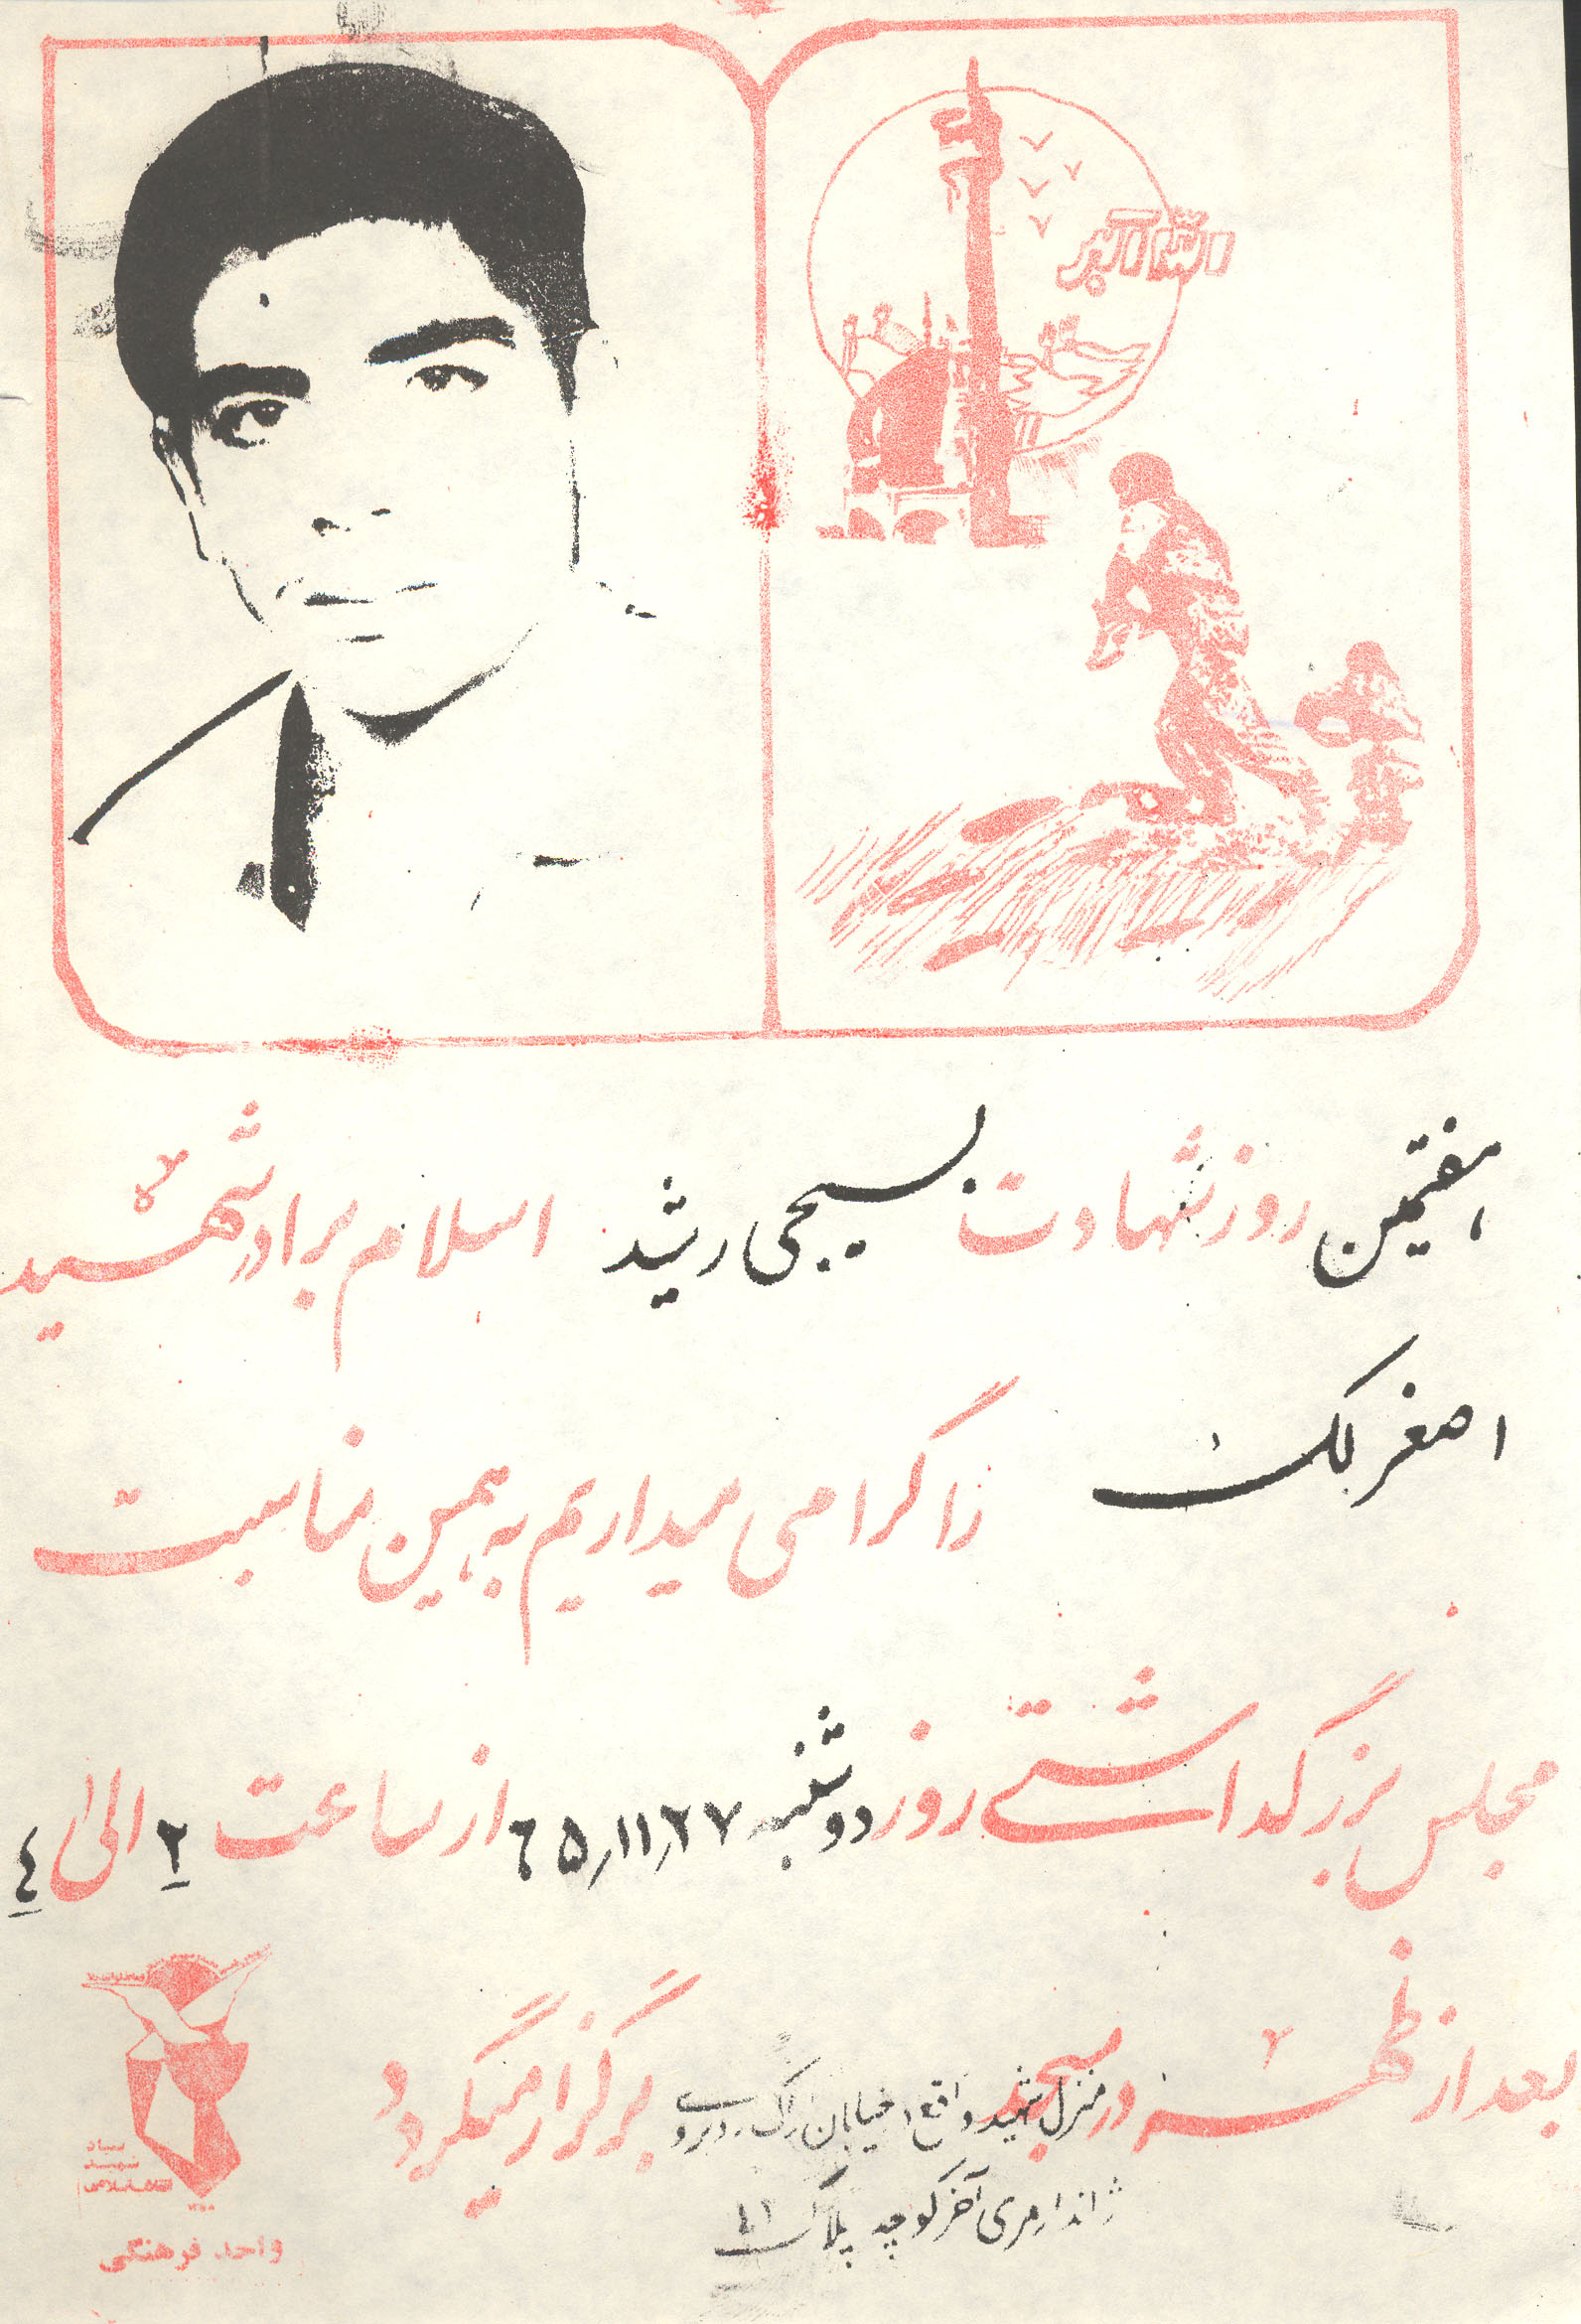 الله اکبر
هفتمین روز شهادت بسیجی رشید اسلام برادر شهید
اصغر بلک
را گرامی میداریم به همین مناسبت
مجلس بزرگداشتی روز دوشنبه ۶۵٫۱۱٫۲۷ از ساعت ۲ الی ۴
بعد از ظهر در مسجد منزل شهید واقع در خیابان اراک روبروی برگزار میگردد
ژاندارمری آخر کوچه پلاک
بنیاد
شهید
انقلاب اسلامی
واحد فرهنگی